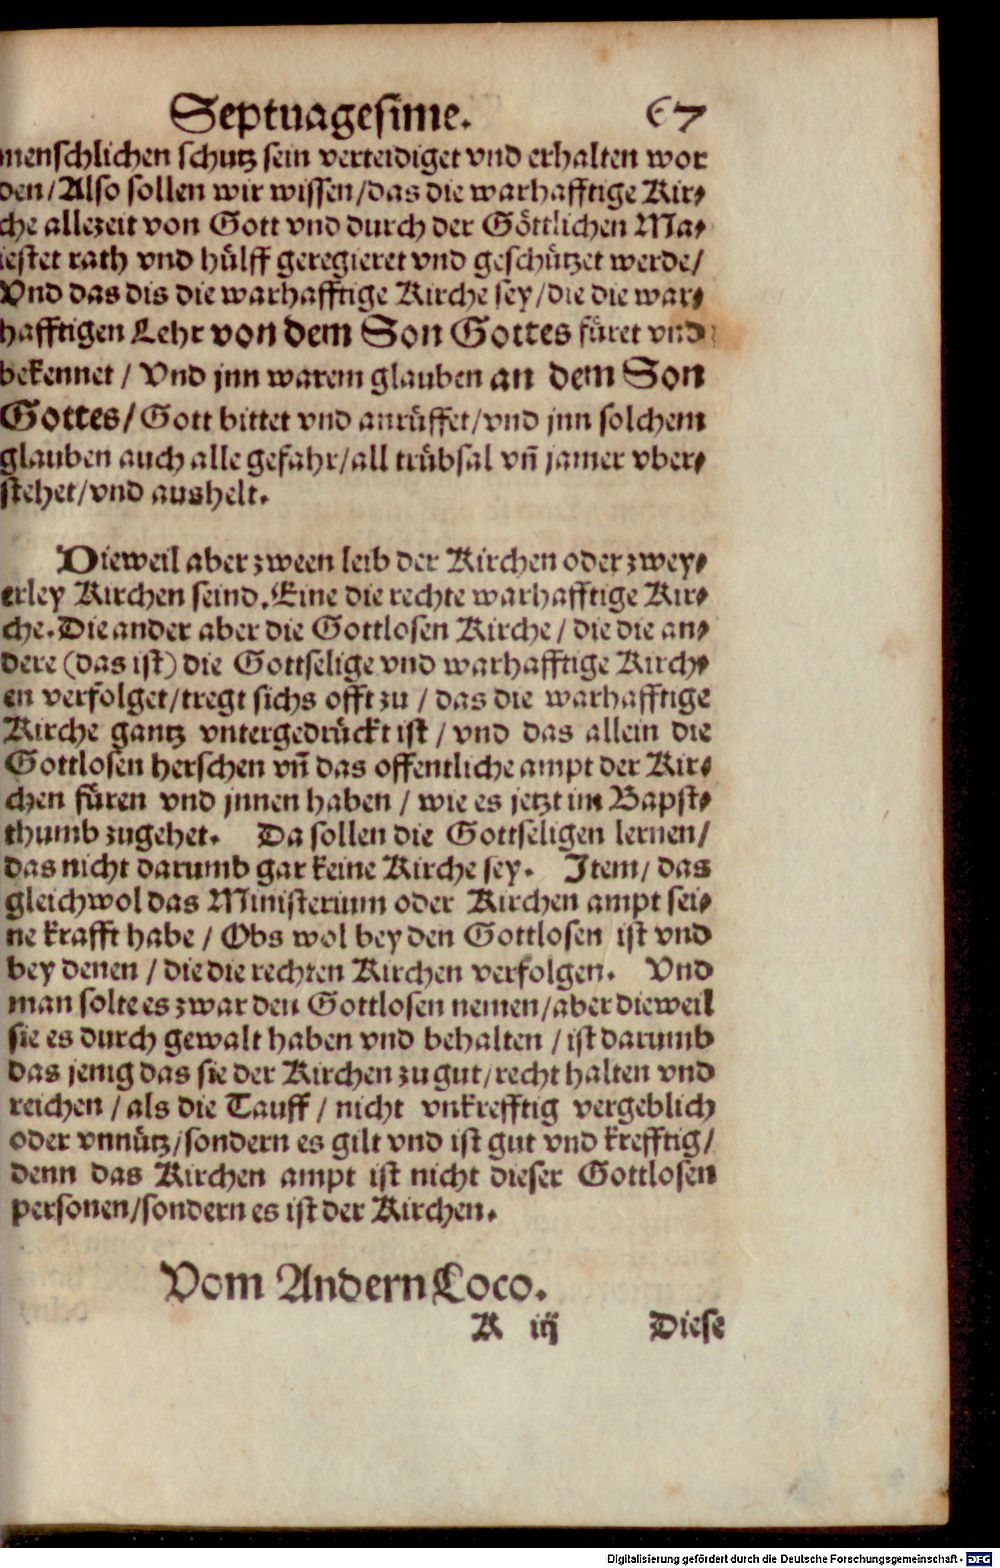 Septuagesime. 67
menschlichen schutz sein verteidiget vnd erhalten wor
den/Also sollen wir wissen/das die warhafftige Kir⸗
che allezeit von Gott vnd durch der Göttlichen Ma⸗
iestet rath vnd hülff geregieret vnd geschützet werde/
Vnd das dis die warhafftige Kirche sey/die die war⸗
hafftigen Lehr von dem Son Gottes füret vnd
bekennet / Vnd jnn warem glauben an dem Son
Gottes/Gott bittet vnd anrüffet/vnd jnn solchem
glauben auch alle gefahr/all trübsal vñ jamer vber⸗
stehet/vnd aushelt.
Dieweil aber zween leib der Kirchen oder zwey⸗
erley Kirchen seind. Eine die rechte warhafftige Kir⸗
che. Die ander aber die Gottlosen Kirche / die die an⸗
dere (das ist) die Gottselige vnd warhafftige Kirch⸗
en verfolget/tregt sichs offt zu / das die warhafftige
Kirche gantz vntergedrückt ist / vnd das allein die
Gottlosen herschen vñ das offentliche ampt der Kir⸗
chen füren vnd jnnen haben / wie es jetzt im Bapst⸗
thumb zugehet. Da sollen die Gottseligen lernen/
das nicht darumb gar keine Kirche sey. Item/ das
gleichwol das Ministerium oder Kirchen ampt sei⸗
ne krafft habe / Obs wol bey den Gottlosen ist vnd
bey denen / die die rechten Kirchen verfolgen. Vnd
man solte es zwar den Gottlosen nemen/aber dieweil
sie es durch gewalt haben vnd behalten / ist darumb
das jenig das sie der Kirchen zu gut/recht halten vnd
reichen / als die Tauff / nicht vnkrefftig vergeblich
oder vnnütz/sondern es gilt vnd ist gut vnd krefftig/
denn das Kirchen ampt ist nicht dieser Gottlosen
personen/sondern es ist der Kirchen.
Vom Andern Loco.
K iij Diese
Digitalisierung gefördert durch die Deutsche Forschungsgemeinschaft - DFG